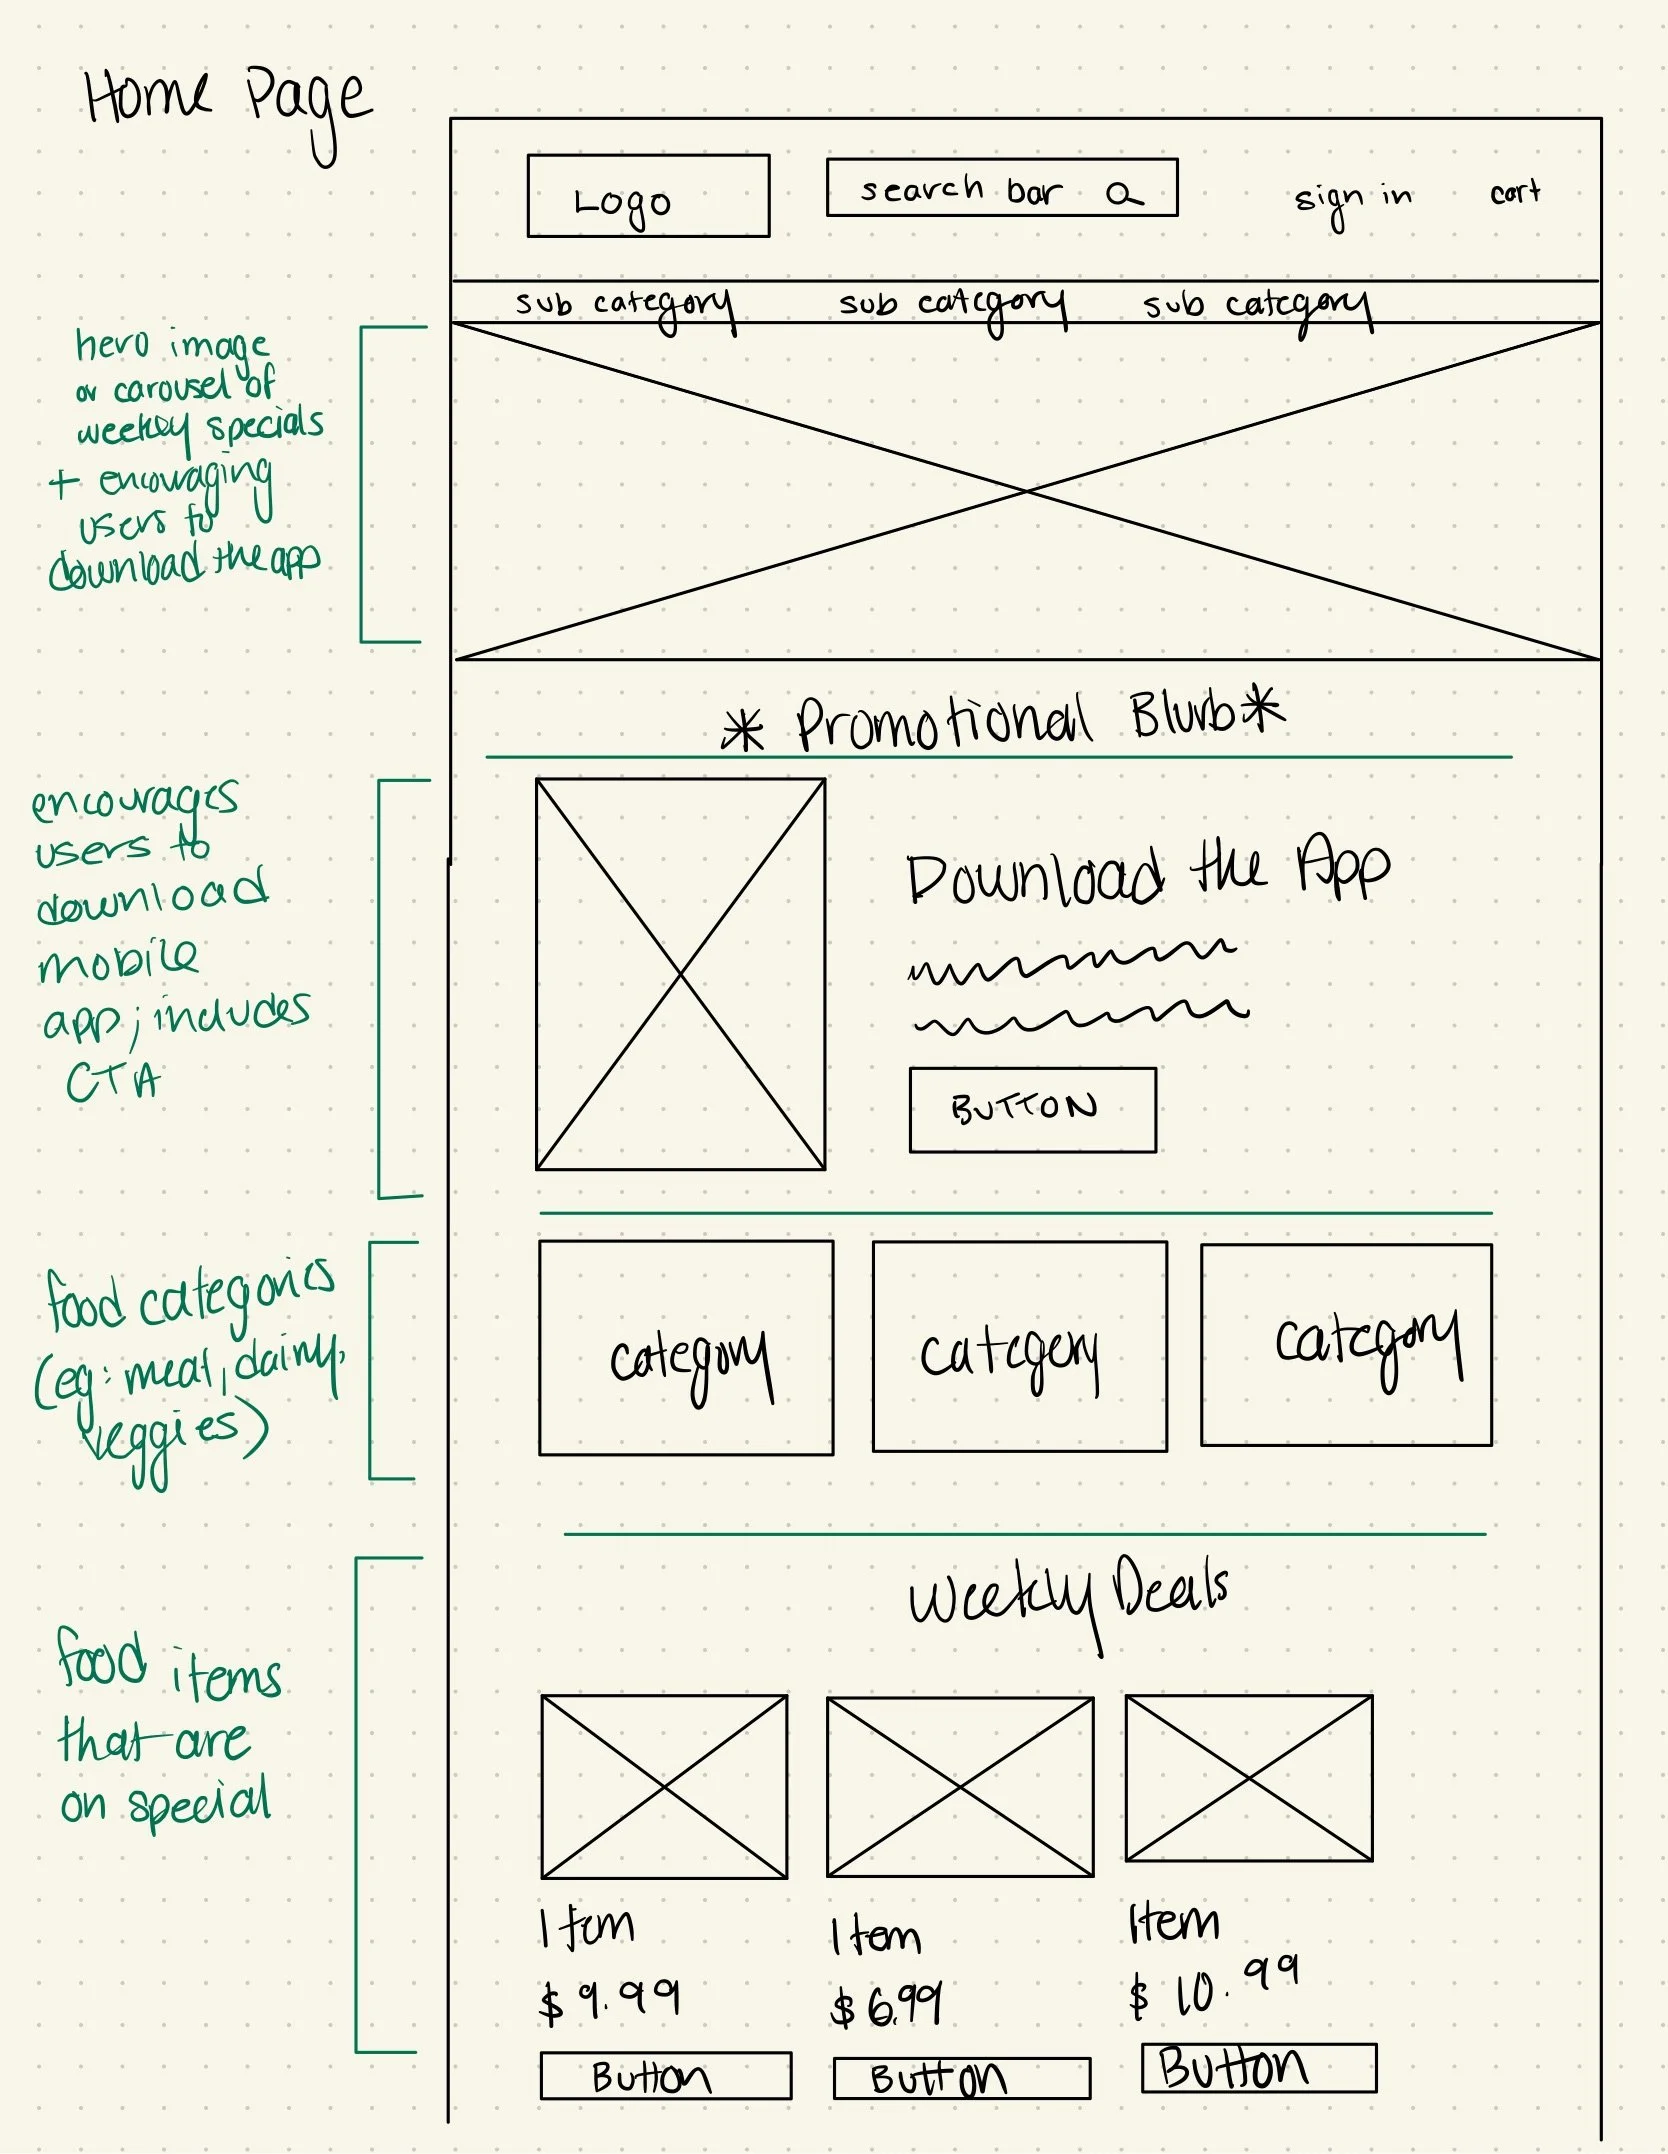 Home Page
Logo
search bar
sign in
cart
sub category
sub category
sub category
hero image
or carousel of
weekly specials
+ encouraging
users to
download the app
* Promotional Blurb *
encourages
users to
download
mobile
app; includes
CTA
Download the App
BUTTON
food categories
(eg: meat, dairy,
veggies)
category
category
category
Weekly Deals
food items
that are
on special
Item
$9.99
Button
Item
$6.99
Button
Item
$10.99
Button